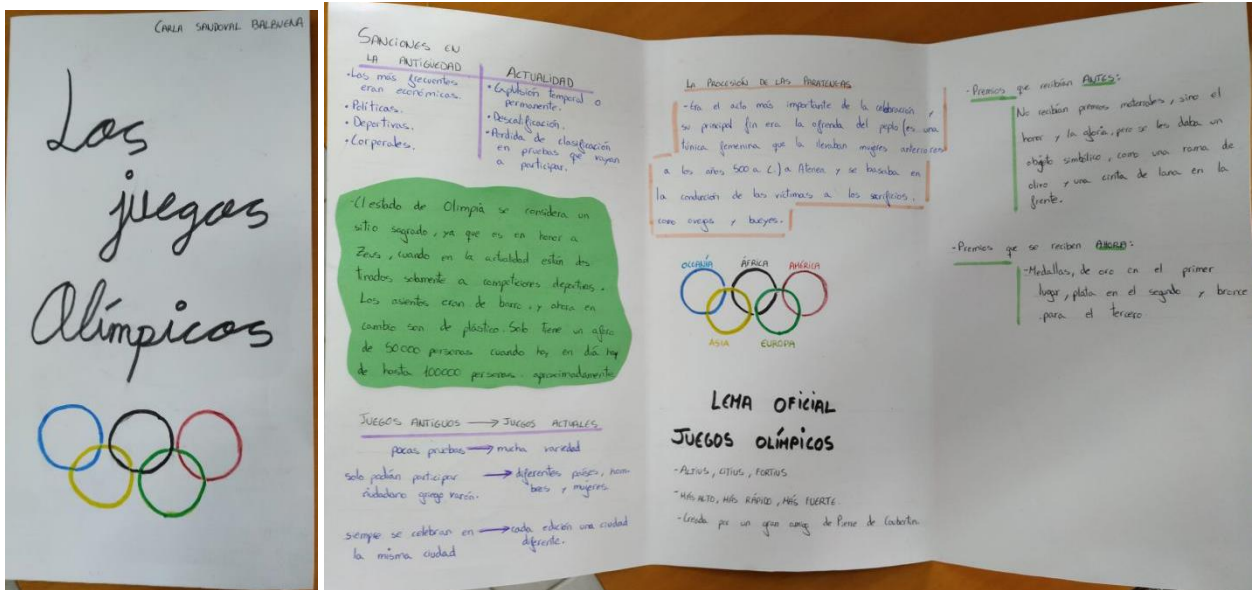 CARLA SANDOVAL BALBUENA
Los
juegos
Olímpicos
SANCIONES EN
LA ANTIGÜEDAD
·Las más frecuentes
eran económicas.
·Políticas.
·Deportivas.
·Corporales.
ACTUALIDAD
·Expulsión temporal o
permanente.
·Descalificación.
·Perdida de clasificación
en pruebas que vayan
a participar.
-El estado de Olimpia se considera un
sitio sagrado, ya que es en honor a
Zeus, cuando en la actualidad están des
tinados solamente a competiciones deportivas.
Los asientos eran de barro, y ahora en
cambio son de plástico. Solo tiene un aforo
de 50000 personas cuando hoy en día hay
de hasta 100000 personas aproximadamente
JUEGOS ANTIGUOS → JUEGOS ACTUALES
pocas pruebas → mucha variedad
solo podían participar → diferentes países, hom
ciudadano griego varón. bres y mujeres.
siempre se celebran en → cada edición una ciudad
la misma ciudad diferente.
LA PROCESIÓN DE LAS
-Era el acto más importante de la celebración y
su principal fin era la ofrenda del peplo (es una
túnica femenina que la llevaban mujeres anteriores
a los años 500 a.C.) a Atenea y se basaba en
la conducción de las víctimas a los sacrificios.
como ovejas y bueyes.
OCEANÍA ÁFRICA AMÉRICA
ASIA EUROPA
LEMA OFICIAL
JUEGOS OLÍMPICOS
-ALTIUS, CITIUS, FORTIUS
-MÁS ALTO, MÁS RÁPIDO, MÁS FUERTE.
-Creada por un gran amigo de Pierre de Coubertin.
-Premios que recibían ANTES:
No recibían premios materiales, sino el
honor y la gloria, pero se les daba un
objeto simbólico, como una rama de
olivo y una cinta de lana en la
frente.
-Premios que se reciben AHORA:
-Medallas, de oro en el primer
lugar, plata en el segundo y bronce
para el tercero